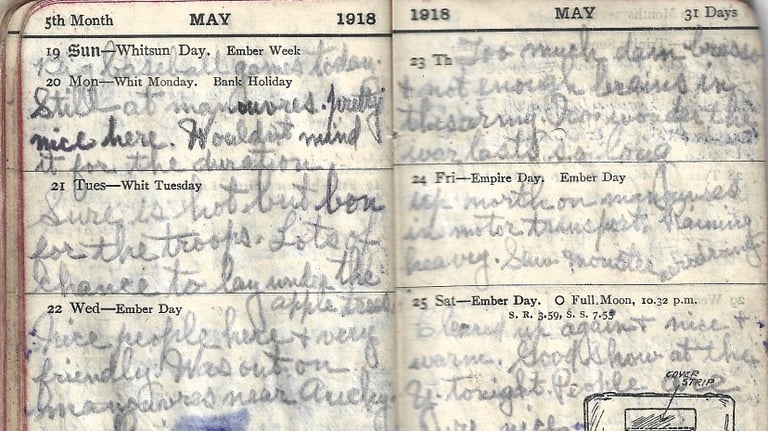 5th Month MAY 1918
19 Sun—Whitsun Day. Ember Week
Big baseball games today.
20 Mon—Whit Monday. Bank Holiday
Still at manouvres. pretty
nice here. Wouldn't mind
it for the duration
21 Tues—Whit Tuesday
Sure is hot but bon
for the troops. Lots of
chance to lay under the
apple trees
22 Wed—Ember Day
Nice people here & very
friendly. Was out on
manouvres near
1918 MAY 31 Days
23 Th Too much damn brass
& not enough brains in
this army. wonder the
war lasts so long
24 Fri—Empire Day. Ember Day
up north on manouvres
in motor transport. Raining
heavy. Saw
25 Sat—Ember Day. O Full Moon, 10.32 p.m.
S. R. 3.59, S. S. 7.55
Cleared up again & nice &
warm. Good show at the
Y. tonight. People
are nice
COVER
STRIP